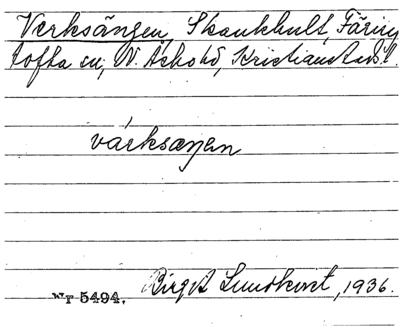 Verksängen, Skankhult, Färing
tofta sn, N. Åsbo hd, Kristianstads l.
värksæŋen
Nr 5494. Birgit Lundkvist, 1936.